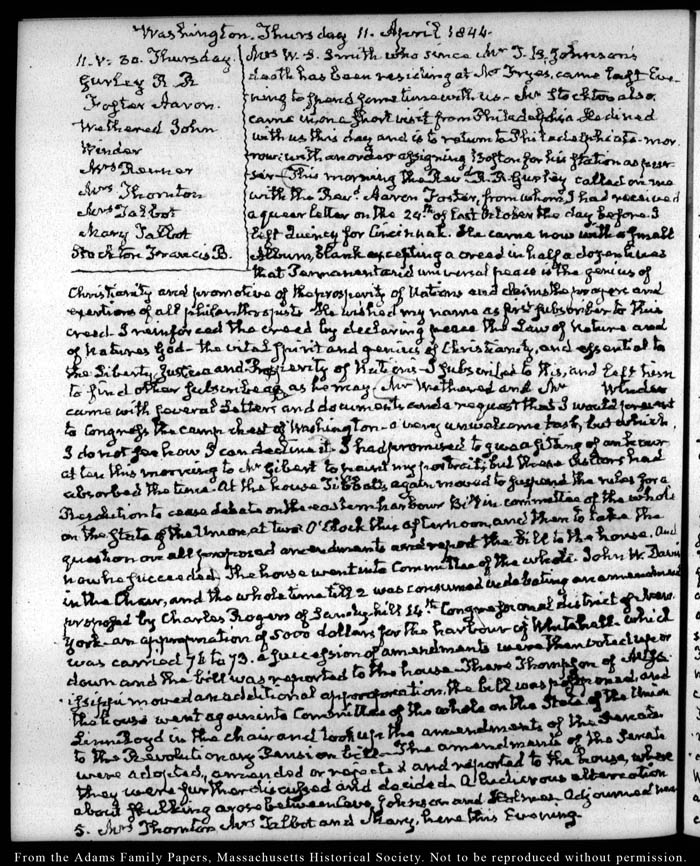 Washington. Thursday 11. April 1844.
11. V: 30. Thursday.
Gurley R R
Foster Aaron.
Wethered John
Winder
Mrs Renner
Mrs Thornton
Mrs Talbot
Mary Talbot
Stockton Francis B.
Mrs W. S. Smith who since Mr T. B. Johnson's
death has been residing at Mr Fryes, came last Eve-
ning to spend some time with us. Mr Stockton also,
came in, on a short visit from Philadelphia. He dined
with us this day and is to return to Philadelphia to-mor-
row; with an order assigning Boston for his station as pur-
ser. This morning the Revd R. R. Gurley called on me
with the Revd. Aaron Foster, from whom I had received
a queer letter on the 24th of last October the day before I
left Quincy for Cincinnati. He came now with a small
Album, blank excepting a creed in half a dozen lines
that Permanent and universal peace is the genius of
Christianity and promotive of the prosperity of Nations and claims the prayers and
exertions of all philanthropists. He wished my name as first subscriber to this
creed. I reinforced the creed by declaring peace the Law of Nature and
of Natures God - the vital Spirit and genius of Christianity, and essential to
the Liberty, Justice and Prosperity of Nations - I subscribed to this, and left him
to find other subscribers as he may. Mr Wethered and Mr Winder
came with several Letters and documents and a request that I would present
to Congress the camp chest of Washington - a very unwelcome task, but which
I do not see how I can decline it. I had promised to give a sitting of an hour
at ten this morning to Mr Gibert to paint my portrait; but these visitors had
absorbed the time. At the house Tibbatts again moved to suspend the rules for a
Resolution to cease debate on the eastern harbour Bill in committee of the whole
on the State of the Union, at two O'Clock this afternoon, and then to take the
question on all proposed amendments and report the bill to the house. And
now he succeeded. The house went into Committee of the whole. John W. Davis
in the Chair, and the whole time till 2 was consumed in debating an amendment
proposed by Charles Rogers of Sandy-hill 14th Congressional district of New
York - an appropriation of 5000 dollars for the harbour of Whitehall which
was carried 76 to 73. a succession of amendments were then voted up or
down and the bill was reported to the house. There Thompson of Missi-
issippi moved an additional appropriation, the bill was postponed, and
the house went again into Committee of the whole on the State of the Union
Linn Boyd in the chair and took up the amendments of the Senate
to the Revolutionary Pension bill - The amendments of the Senate
were adopted, amended or rejected and reported to the house, where
they were further discussed and decided. A ludicrous altercation
about skulking arose between Cave Johnson and Adjourned near
5. Mrs Thornton Mrs Talbot and Mary, here this Evening.
From the Adams Family Papers, Massachusetts Historical Society. Not to be reproduced without permission